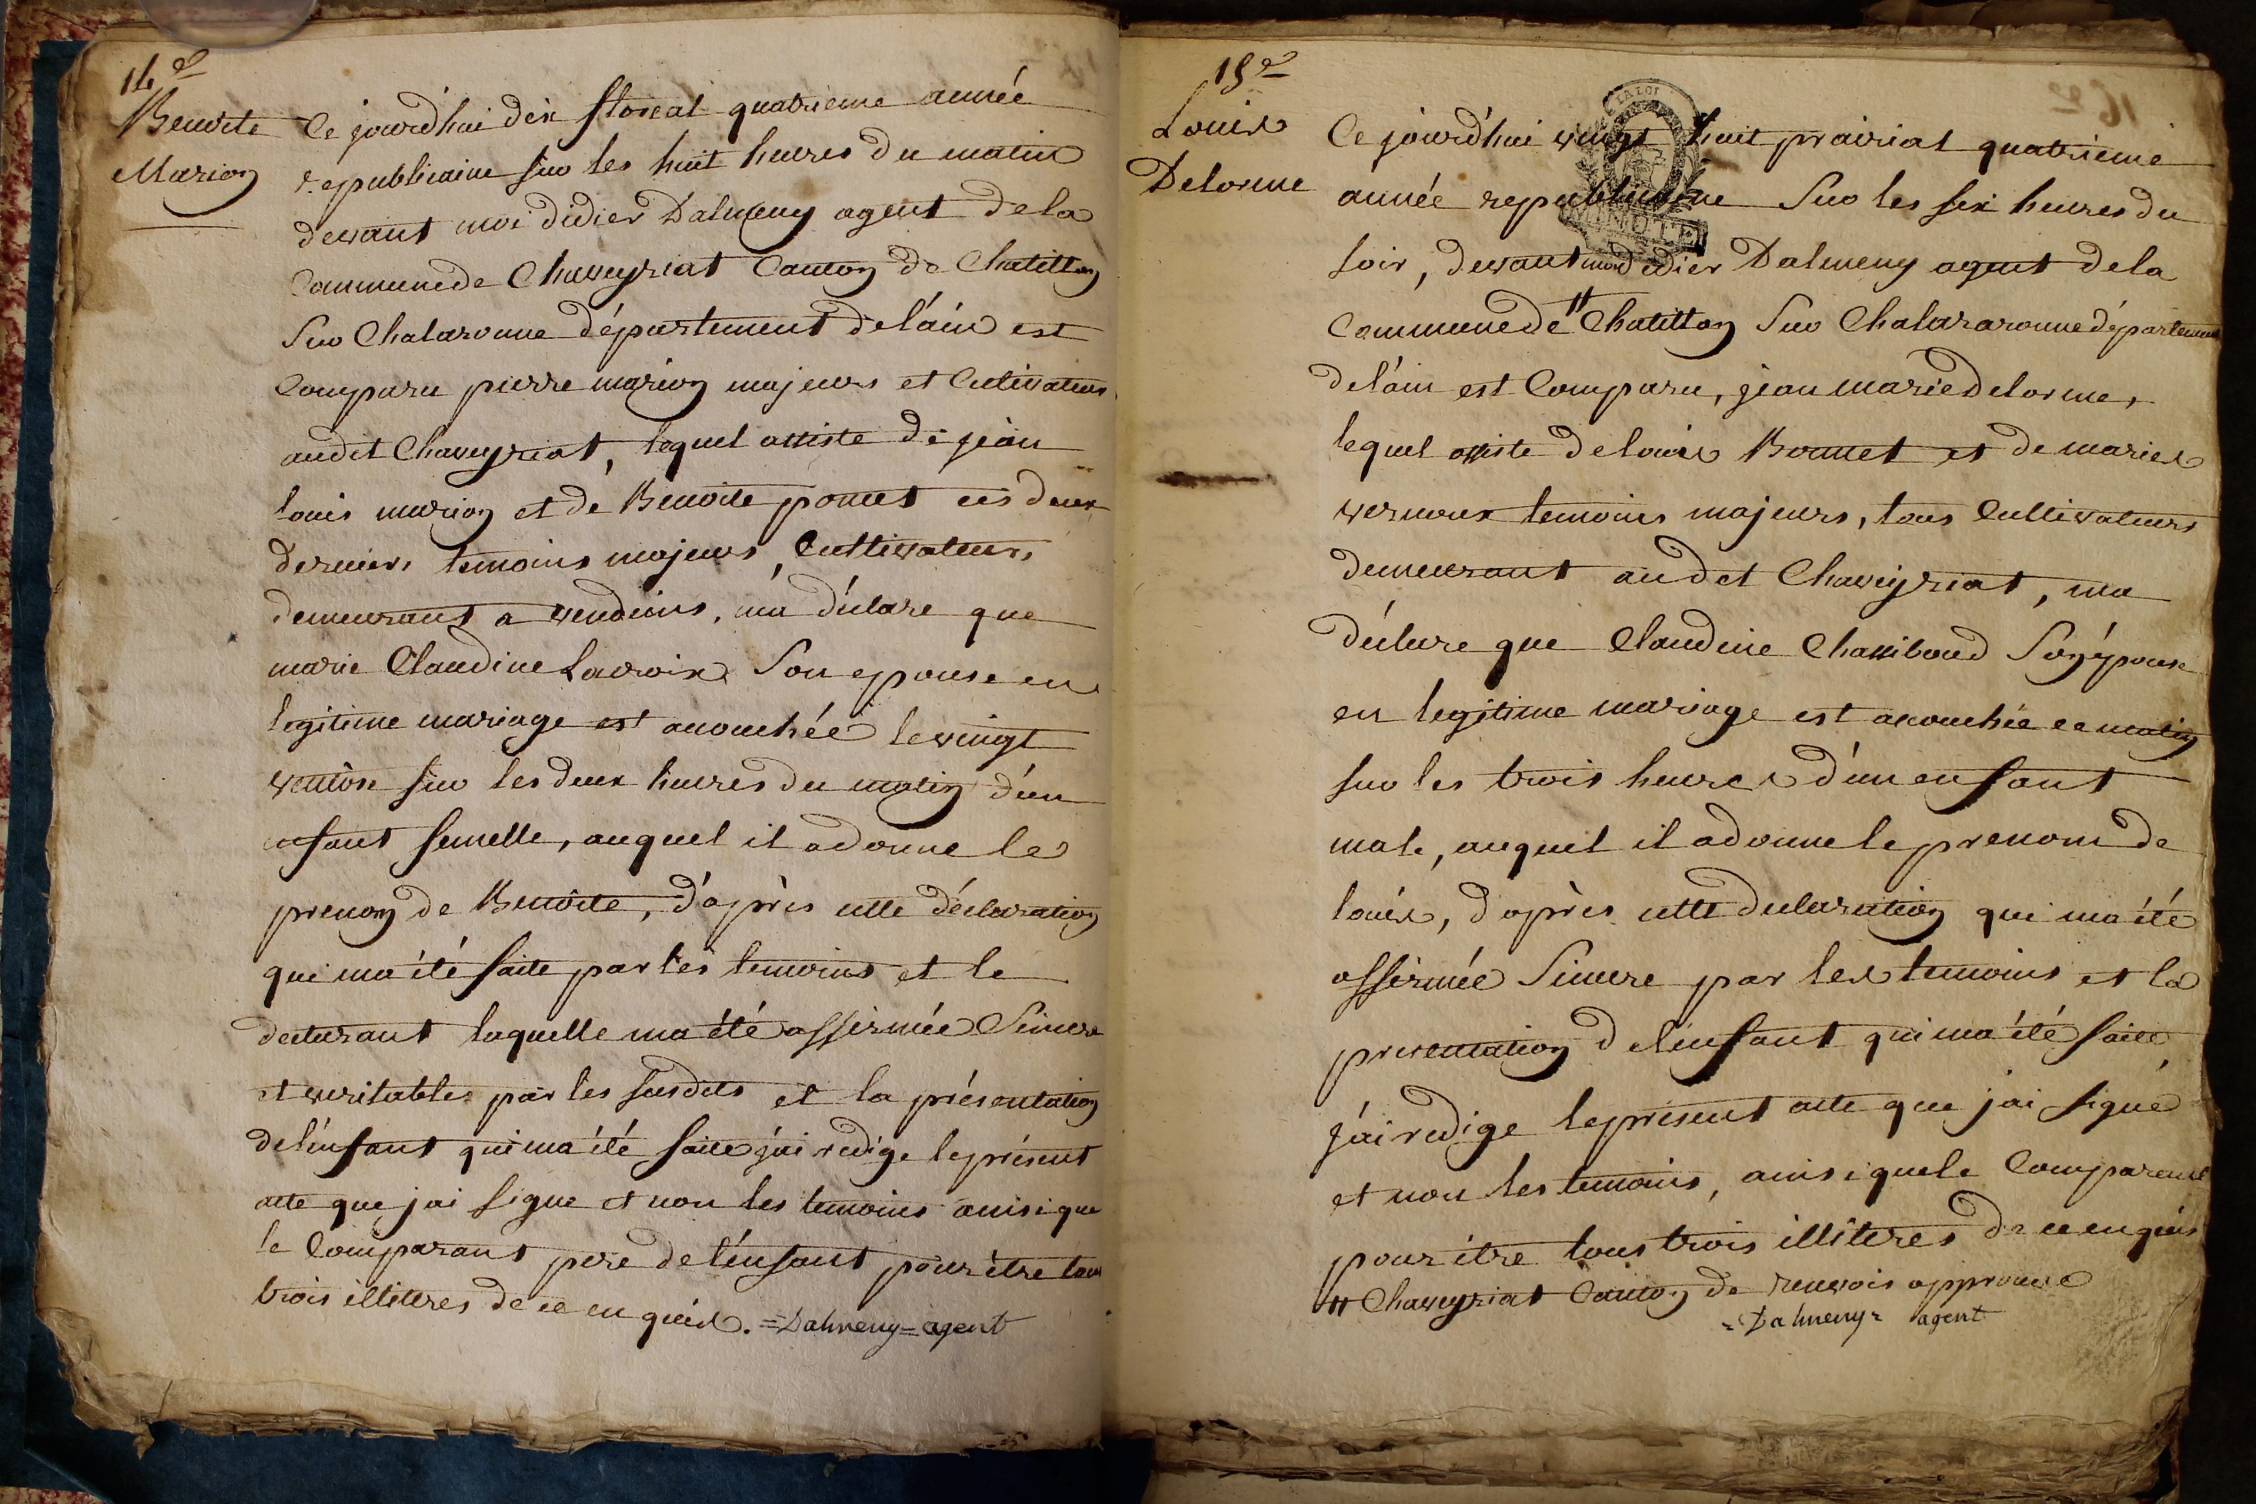 14e
Benoite
Marion
Ce jourd'hui dix floreal quatrieme année
republicaine sur les huit heures du matin
devant moi didier Dalmeny agent de la
Commune de Chaveyriat Canton de Chatillon
Sur Chalaronne département de l'ain est
Comparu pierre marion majeurs et Cultivateurs
audit Chaveyriat, lequel assiste de jean
louis marion et de Benoite ponet ces deux
derniers temoins majeurs, Cultivateurs
demeurant a vendeins, m'a déclare que
marie Claudine Lacroix Son epouse en
legitime mariage est acouchée le vingt
ventôse sur les deux heures du matin d'un
enfant femelle, auquel il a donne le
prenom de Benoite, d'après cette déclaration
qui ma été faite par les temoins et le
declarant laquelle ma été affirmée Sincere
et veritables par les susdits et la présentation
de l'enfant qui ma été faite j'ai redige le présent
acte que jai signe et non les temoins ainsi que
le Comparant pere de l'enfant pour être tous
trois illiteres de ce enquis. = Dalmeny = agent
15e
Louis
Delorme
LA LOI
MINUTE
Ce jourd'hui vingt huit prairial quatrieme
année republicaine Sur les six heures du
soir, devant moi didier Dalmeny agent de la
Commune de # Chatillon Sur Chalararonne département
de l'ain est Comparu, jean marie delorme,
lequel assiste de louis Bonnet et de maries
vernoux temoins majeurs, tous Cultivateurs
demeurant audit Chaveyriat, ma
déclare que Claudine Chassiboud Son épouse
en legitime mariage est acouchée ce matin
sur les trois heures d'un enfant
male, auquel il a donne le prenom de
louis, d'après cette declaration qui ma été
affirmée Sincere par les temoins et la
presentation de l'enfant qui ma été faite,
j'ai redige le présent acte que j'ai signé
et non les temoins, ainsi que le Comparant
pour être tous trois illiteres de ce enquis
# Chaveyriat Canton de renvois approuve
= Dalmeny = agent